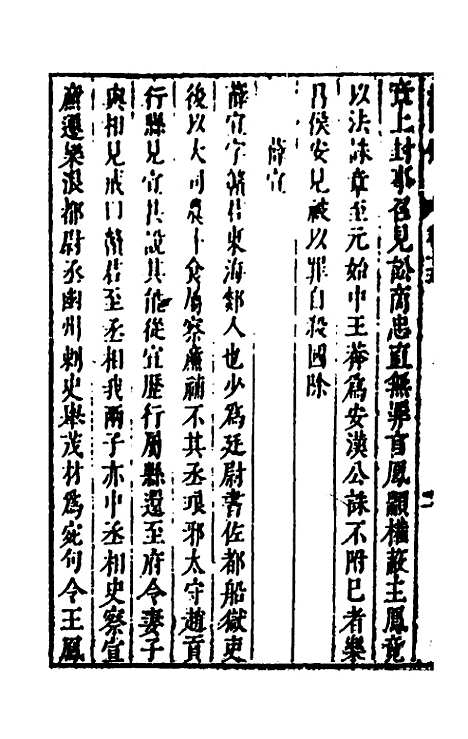 章上封事召見訟商忠直無罪言鳳顓權蔽主鳳竟
以法誅章至元始中王莽為安漢公誅不附己者樂
昌侯安見被以罪自殺國除
薛宣
薛宣字贛君東海郯人也少為廷尉書佐都船獄吏
後以大司農斗食屬察廉補不其丞琅邪太守趙貢
行縣見宣甚說其能從宣歷行屬縣還至府令妻子
與相見戒曰贛君至丞相我兩子亦中丞相史察宣
廉遷樂浪都尉丞幽州刺史舉茂材為宛句令王鳳